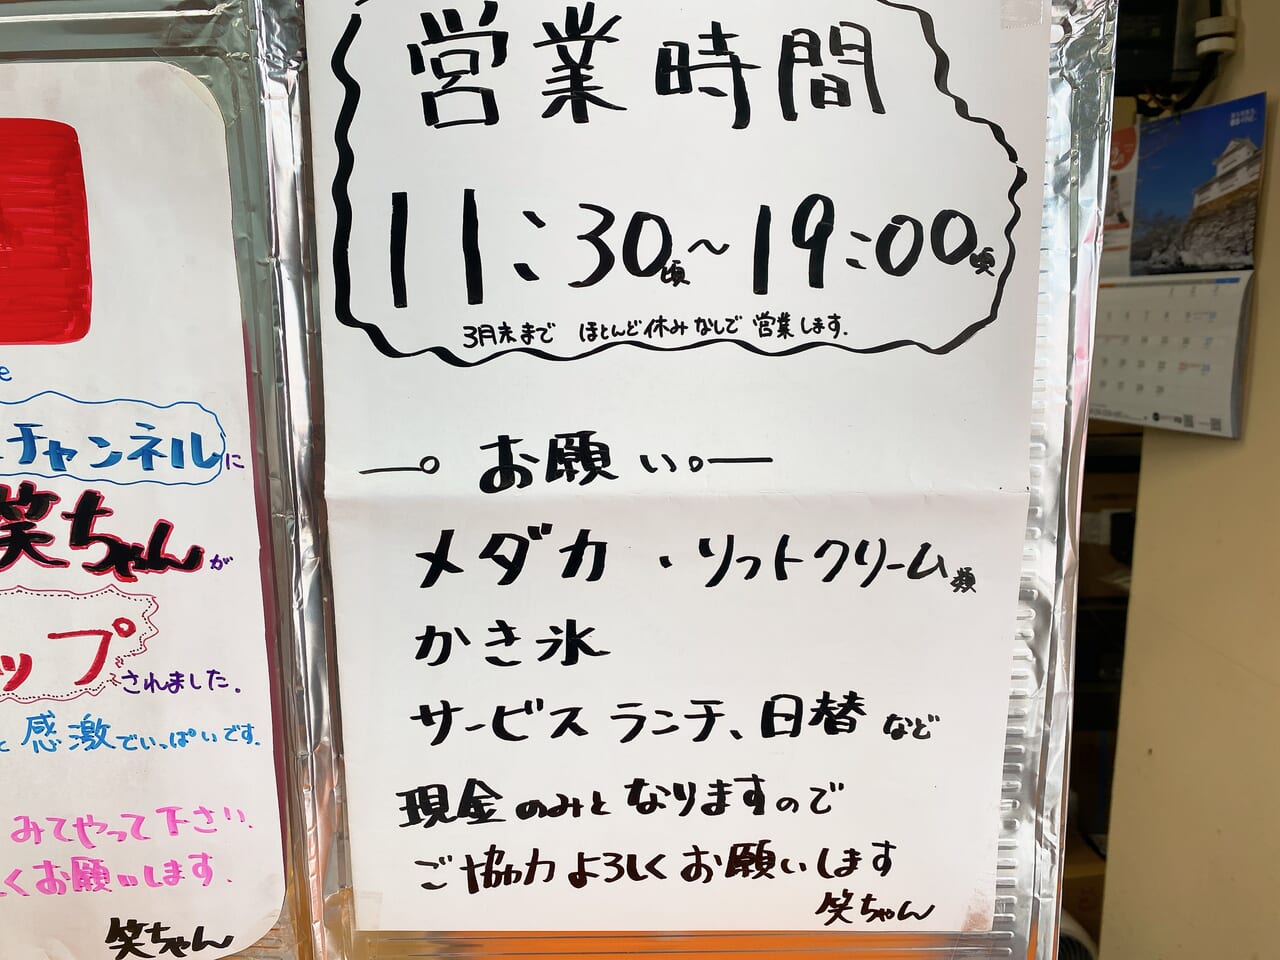 営業時間
11:30頃~19:00頃
3月末まで ほとんど休みなしで 営業します.
お願い
メダカ・ソフトクリーム類
かき氷
サービスランチ、日替など
現金のみとなりますので
ご協力よろしくお願いします
笑ちゃん
チャンネルに
笑ちゃんが
ップされました.
と感激でいっぱいです.
みてやって下さい.
くお願いします.
笑ちゃん